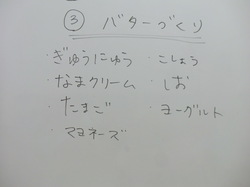 ③ バターづくり
・ぎゅうにゅう ・こしょう
・なまクリーム ・しお
・たまご ・ヨーグルト
・マヨネーズ